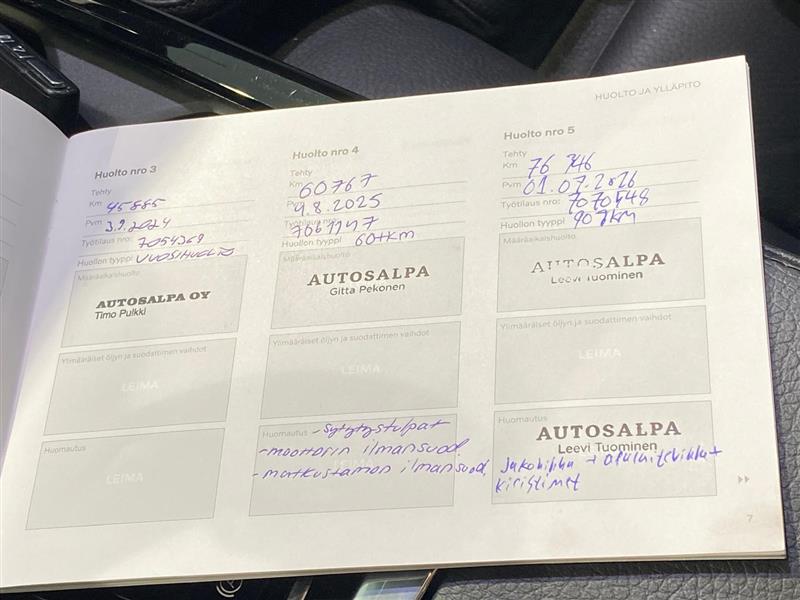 HUOLTO JA YLLÄPITO
Huolto nro 3
Tehty
Km 45885
Pvm 3.9.2024
Työtilaus nro: 7054369
Huollon tyyppi VUOSIHUOLTO
Määräaikaishuolto
AUTOSALPA OY
Timo Pulkki
Ylimääräiset öljyn ja suodattimen vaihdot
LEIMA
Huomautus
LEIMA
Huolto nro 4
Tehty
Km 60767
Pvm 4.8.2025
Työtilaus nro: 7061147
Huollon tyyppi 60tkm
Määräaikaishuolto
AUTOSALPA
Gitta Pekonen
Ylimääräiset öljyn ja suodattimen vaihdot
LEIMA
Huomautus - sytytystulpat
- moottorin ilmansuod.
- matkustamon ilmansuod.
Huolto nro 5
Tehty
Km 76 746
Pvm 01.07.2026
Työtilaus nro: 7070448
Huollon tyyppi 90tkm
Määräaikaishuolto
AUTOSALPA
Leevi Tuominen
Ylimääräiset öljyn ja suodattimen vaihdot
LEIMA
Huomautus
AUTOSALPA
Leevi Tuominen
Jakohihna + apulaitehihnat
kiristimet
7